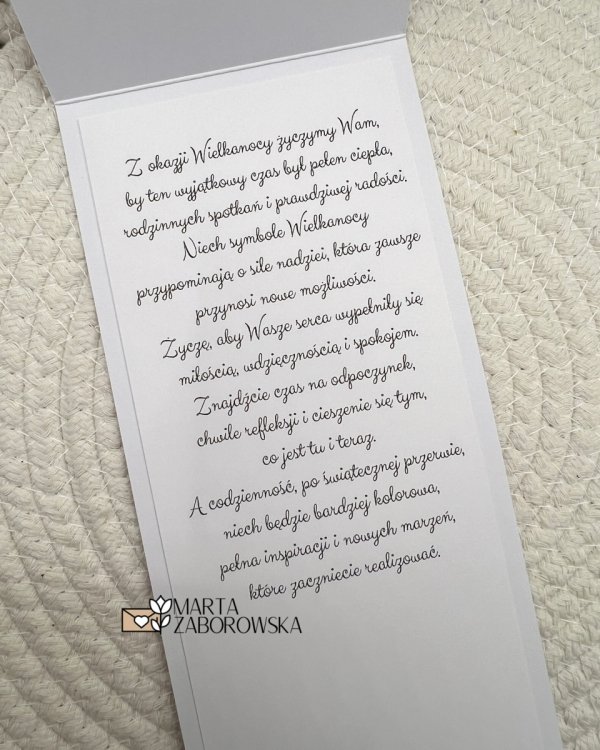 Z okazji Wielkanocy życzymy Wam,
by ten wyjątkowy czas był pełen ciepła,
rodzinnych spotkań i prawdziwej radości.
Niech symbole Wielkanocy
przypominają o sile nadziei, która zawsze
przynosi nowe możliwości.
Życzę, aby Wasze serca wypełniły się
miłością, wdzięcznością i spokojem.
Znajdźcie czas na odpoczynek,
chwile refleksji i cieszenie się tym,
co jest tu i teraz.
A codzienność, po świątecznej przerwie,
niech będzie bardziej kolorowa,
pełna inspiracji i nowych marzeń,
które zaczniecie realizować.
MARTA
ZABOROWSKA